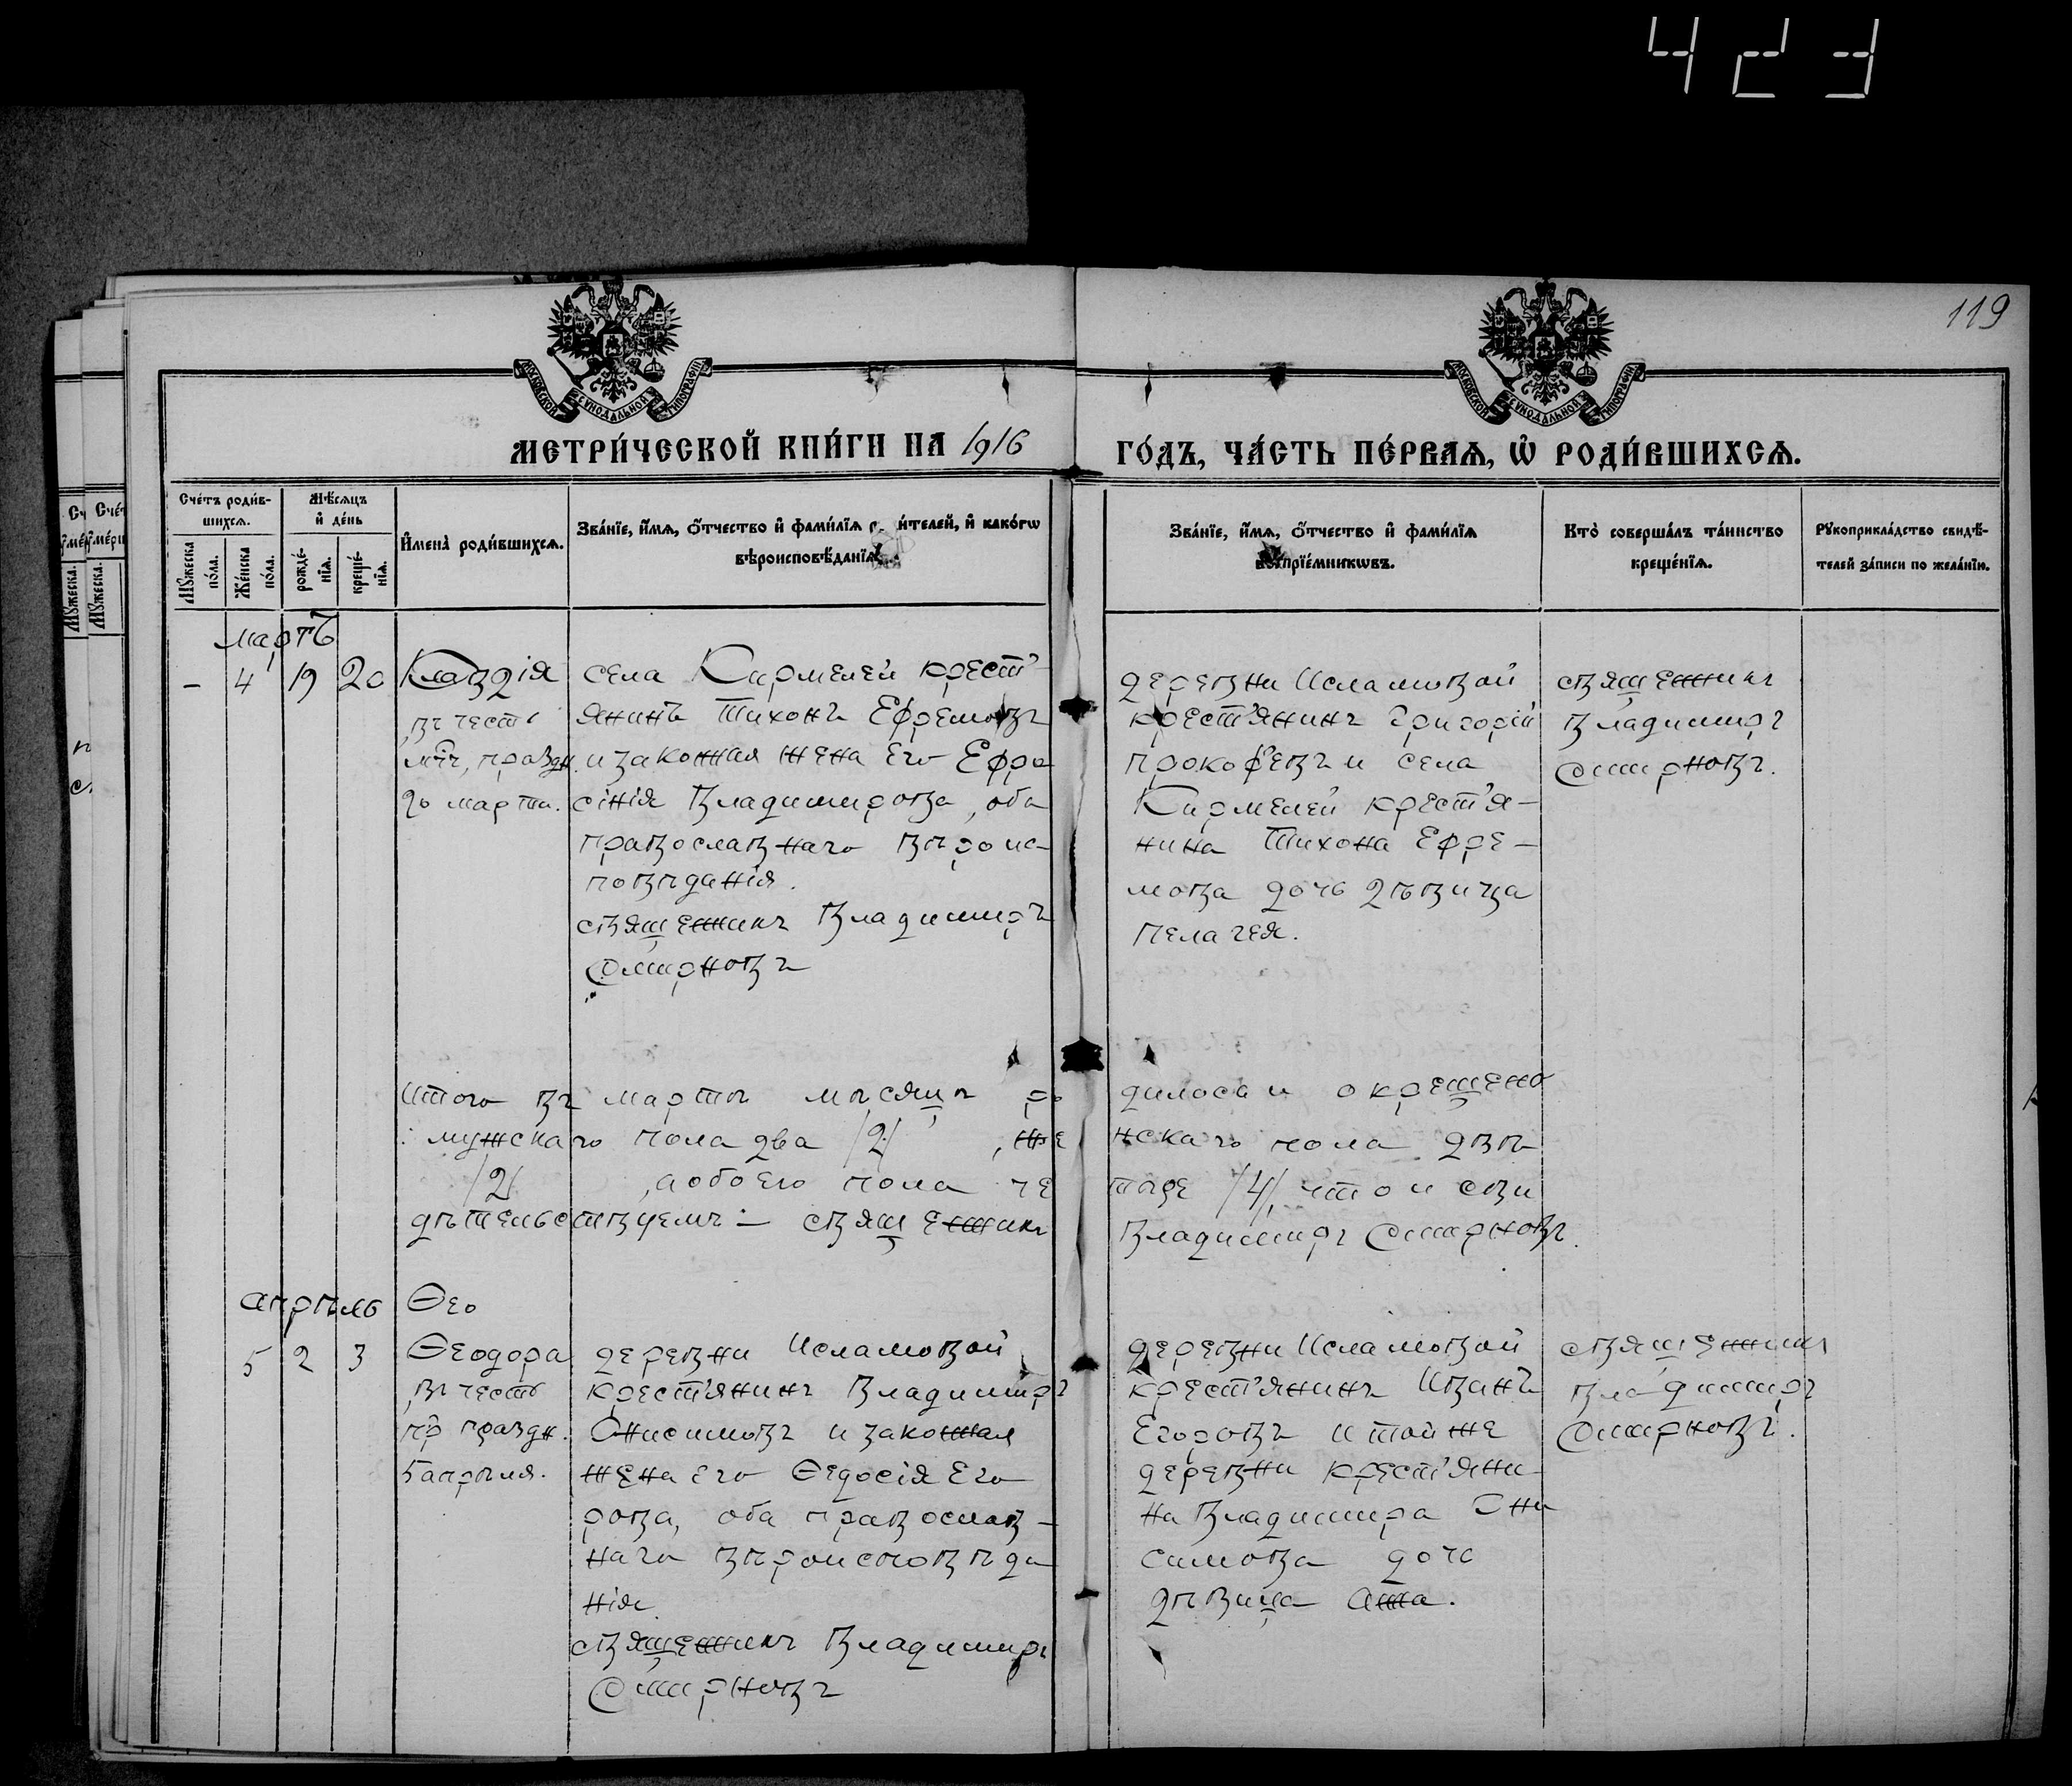 423
119
МОСКОВСКОЙ СѴНОДАЛЬНОЙ ТИПОГРАФІИ
МОСКОВСКОЙ СѴНОДАЛЬНОЙ ТИПОГРАФІИ
МЕТРИ́ЧЕСКОЙ КНИ́ГИ НА 1916 ГО́ДЪ, ЧА́СТЬ ПЕ́РВАѦ, Ѡ҆ РОДИ́ВШИХСѦ.
Сче́тъ роди́в-
шихсѧ.
Мꙋ́жеска по́ла.
Же́нска по́ла.
Мѣ́сѧцъ
и҆ де́нь
рожде́-
нїѧ.
креще́-
нїѧ.
И҆мена̀ роди́вшихсѧ.
Зва́нїе, и҆́мѧ, ѻ҆́тчество и҆ фами́лїѧ р и́телей, и҆ како́гѡ
вѣроисповѣ́данїѧ.
Зва́нїе, и҆́мѧ, ѻ҆́тчество и҆ фами́лїѧ
воспрїе́мникѡвъ.
Кто̀ соверша́лъ та́инство
креще́нїѧ.
Рꙋкоприкла́дство свидѣ́-
телей за́писи по жела́нїю.
мартъ
- 4 19 20
Клавдія
въ честь
мч҃ц, праздн.
20 марта.
села Кармелей крест'-
янинъ Тихонъ Ефремовъ
и законная жена его Ефро
сінія Владимирова, оба
православнаго вѣроис-
повѣданія.
священникъ Владимиръ
Смирновъ
деревни Исламовой
крест'янинъ Григорій
Прокофьевъ и села
Кармелей крест'я-
нина Тихона Ефре-
мова дочь дѣвица
Пелагея.
священникъ
Владимиръ
Смирновъ.
Итого въ мартѣ мѣсяцѣ родилось и окрещено
: мужскаго пола два /2/, женскаго пола двѣ
/2/, а обоего пола четыре /4/, что и сви
дѣтельствуемъ:- священникъ Владимиръ Смирновъ.
апрѣль Ѳео
5 2 3
Ѳеодора
въ честь
пр҃ праздн.
5 апрѣля.
деревни Исламовой
крест'янинъ Владимиръ
Онисимовъ и законная
жена его Ѳедосія Его
рова, оба православ-
наго вѣроисповѣда
нія.
священникъ Владимиръ
Смирновъ
деревни Исламовой
крест'янинъ Иванъ
Егоровъ и той же
деревни крест'яни-
на Владимира Они
симова дочь
дѣвица Анна.
священникъ
Владимиръ
Смирновъ.